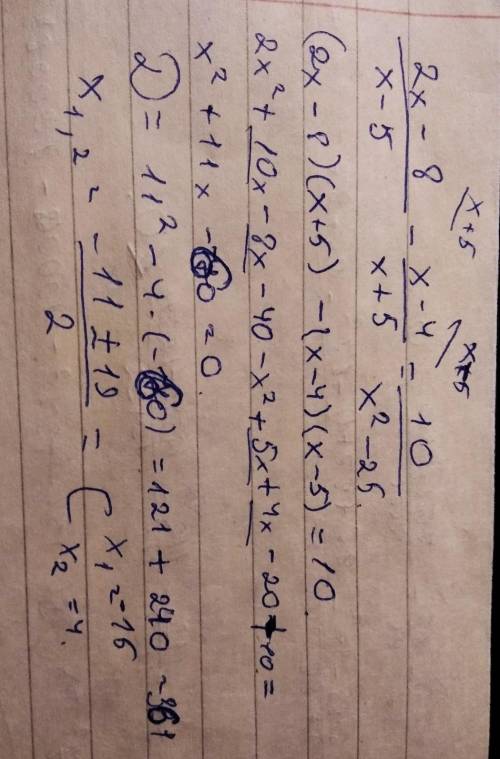 x+5 x-5
(2x - 8)/(x - 5) - (x - 4)/(x + 5) = 10/(x² - 25)
(2x - 8)(x+5) - (x-4)(x-5) = 10
2x² + 10x - 8x - 40 - x² + 5x + 4x - 20 - 10 =
x² + 11x - 60 = 0
D = 11² - 4·(-60) = 121 + 240 = 361
x₁,₂ = (-11 ± 19)/2 = ( x₁ = -16
x₂ = 4.